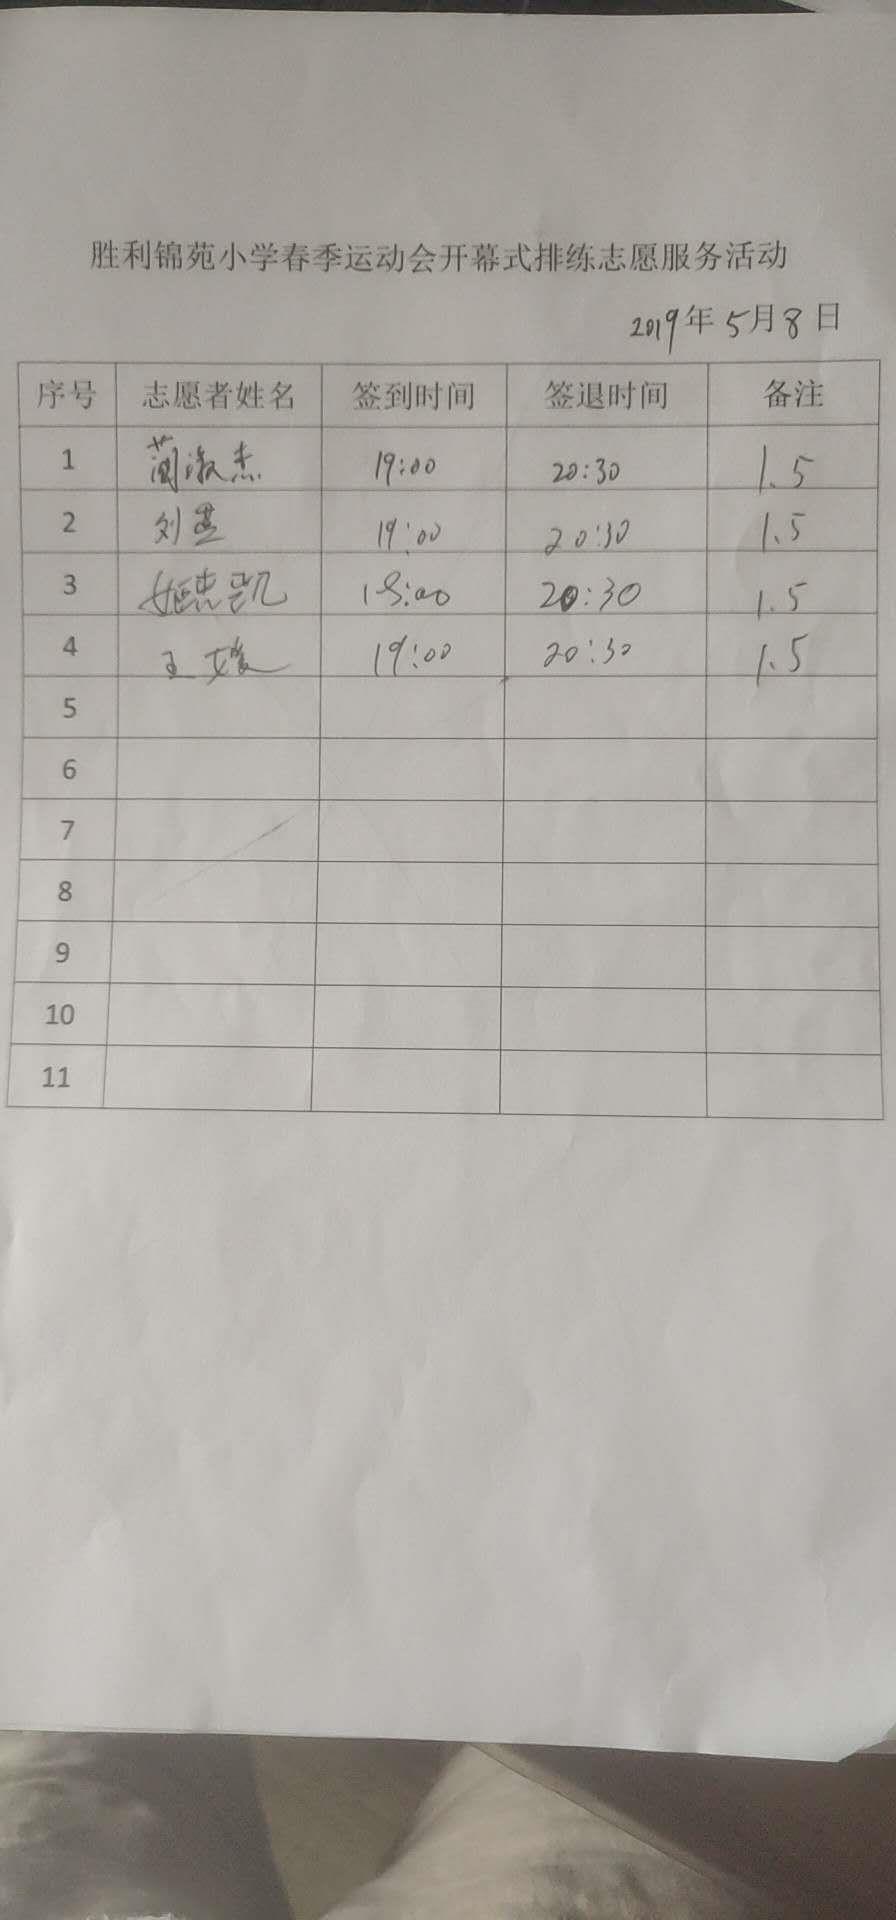 胜利锦苑小学春季运动会开幕式排练志愿服务活动
2019年5月8日
序号 志愿者姓名 签到时间 签退时间 备注
1 蔺淑杰 19:00 20:30 1.5
2 刘 19:00 20:30 1.5
3 凯 19:00 20:30 1.5
4 王媛 19:00 20:30 1.5
5
6
7
8
9
10
11